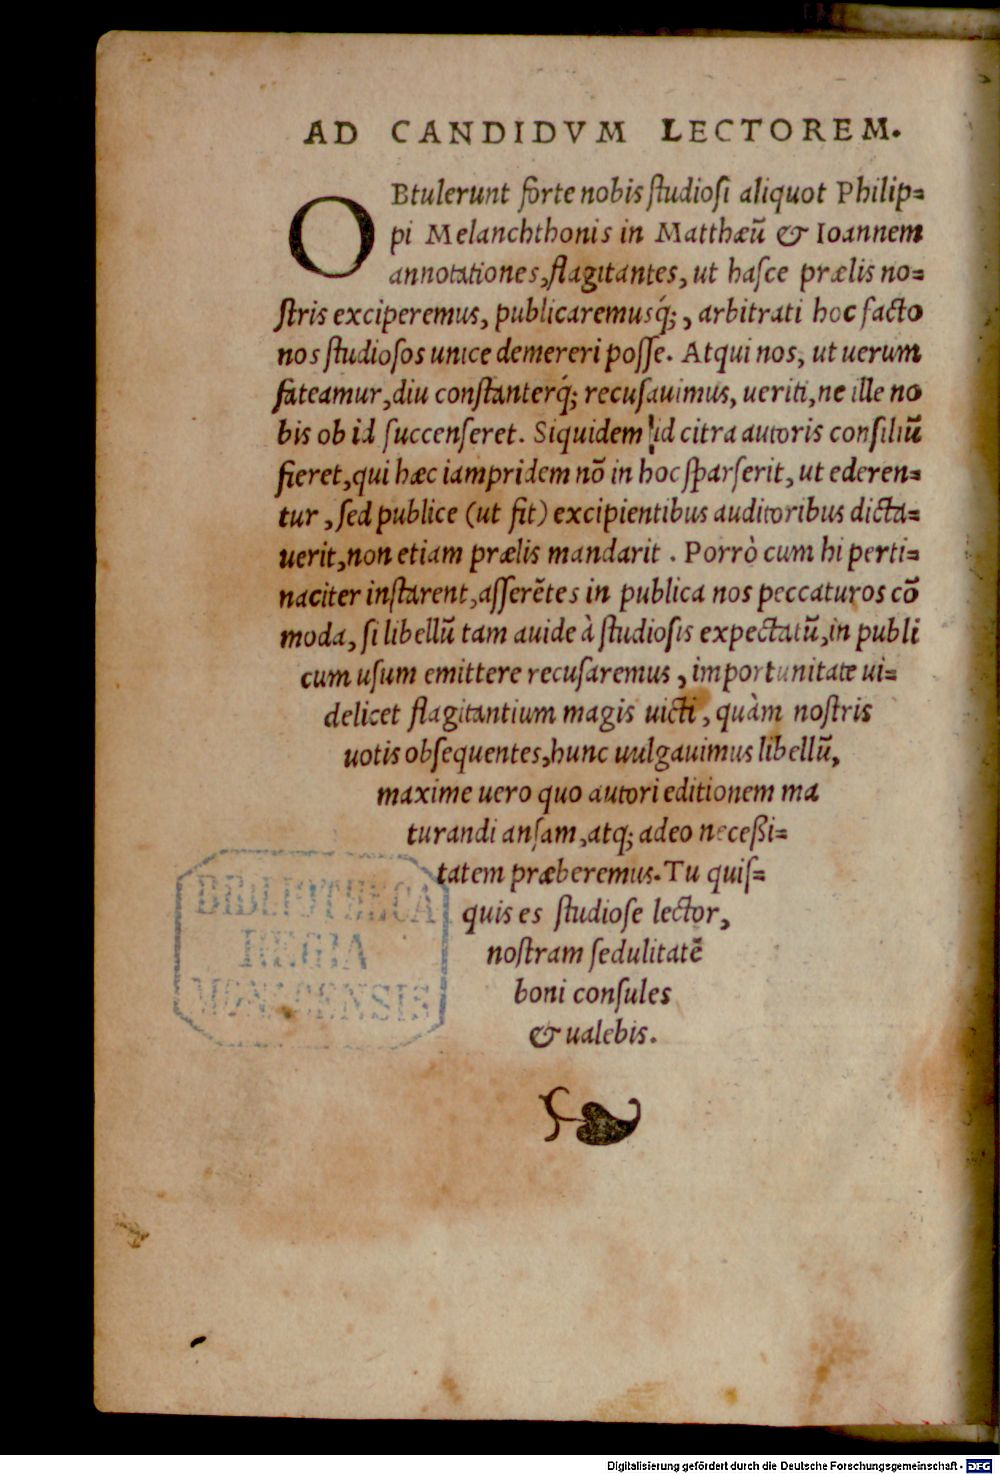 AD CANDIDVM LECTOREM.
OBtulerunt forte nobis ſtudioſi aliquot Philip=
pi Melanchthonis in Matthæū & Ioannem
annotationes, flagitantes, ut haſce prælis no=
ſtris exciperemus, publicaremusq́;, arbitrati hoc facto
nos ſtudioſos unice demereri poſſe. Atqui nos, ut uerum
fateamur, diu conſtanterq́; recuſauimus, ueriti, ne ille no
bis ob id ſuccenſeret. Siquidem id citra autoris conſiliū
fieret, qui hæc iampridem nō in hoc ſparſerit, ut ederen=
tur, ſed publice (ut fit) excipientibus auditoribus dicta=
uerit, non etiam prælis mandarit. Porrò cum hi perti=
naciter inſtarent, aſſerētes in publica nos peccaturos cō
moda, ſi libellū tam auide à ſtudioſis expectatū, in publi
cum uſum emittere recuſaremus, importunitate ui=
delicet flagitantium magis uicti, quàm noſtris
uotis obſequentes, hunc uulgauimus libellū,
maxime uero quo autori editionem ma
turandi anſam, atq; adeo neceßi=
tatem præberemus. Tu quiſ=
quis es ſtudioſe lector,
noſtram ſedulitatē
boni conſules
& ualebis.
BIBLIOTHECA
REGIA
MONACENSIS
Digitalisierung gefördert durch die Deutsche Forschungsgemeinschaft - DFG